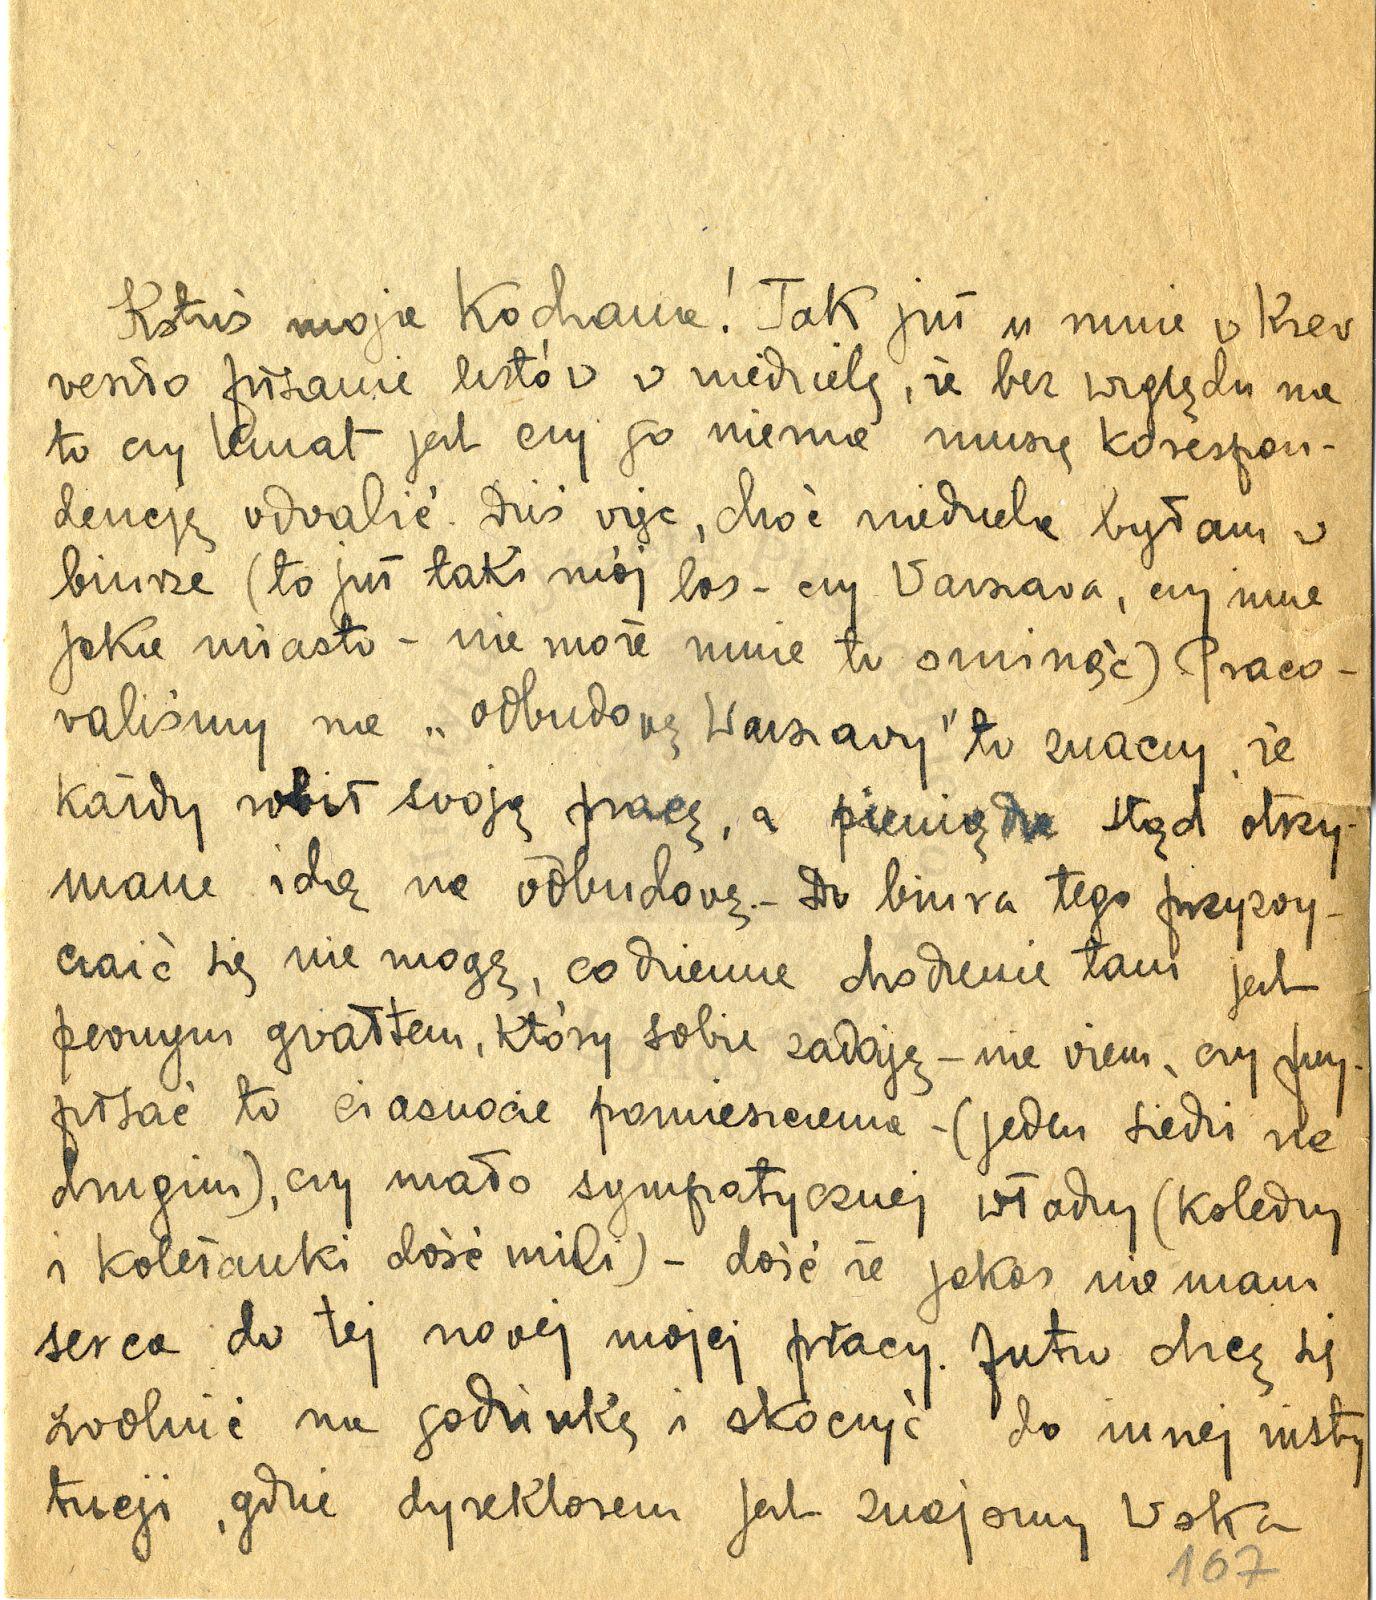 Kstuś moje Kochane! Tak już u mnie w krew
weszło pisanie listów w niedzielę, że bez względu na
to czy temat jest czy go niema muszę korespon-
dencję odwalić. Dziś więc, choć niedziela byłam w
biurze (to już taki mój los - czy Warszawa, czy inne
jakie miasto - nie może mnie to ominąć) Praco-
waliśmy na „odbudowę Warszawy" to znaczy, że
każdy robił swoją pracę, a pieniądze stąd otrzy-
mane idą na odbudowę. - Do biura tego przyzwy-
czaić się nie mogę, codzienne chodzenie tam jest
pewnym gwałtem, który sobie zadaję - nie wiem, czy przy-
pisać to ciasnocie pomieszczenia - (jeden siedzi na
drugim), czy mało sympatycznej władzy (koledzy
i koleżanki dość mili) - dość że jakoś nie mam
serca do tej nowej mojej pracy. Jutro chcę się
zwolnić na godzinkę i skoczyć do innej insty
tucji, gdzie dyrektorem jest znajomy Wska
167